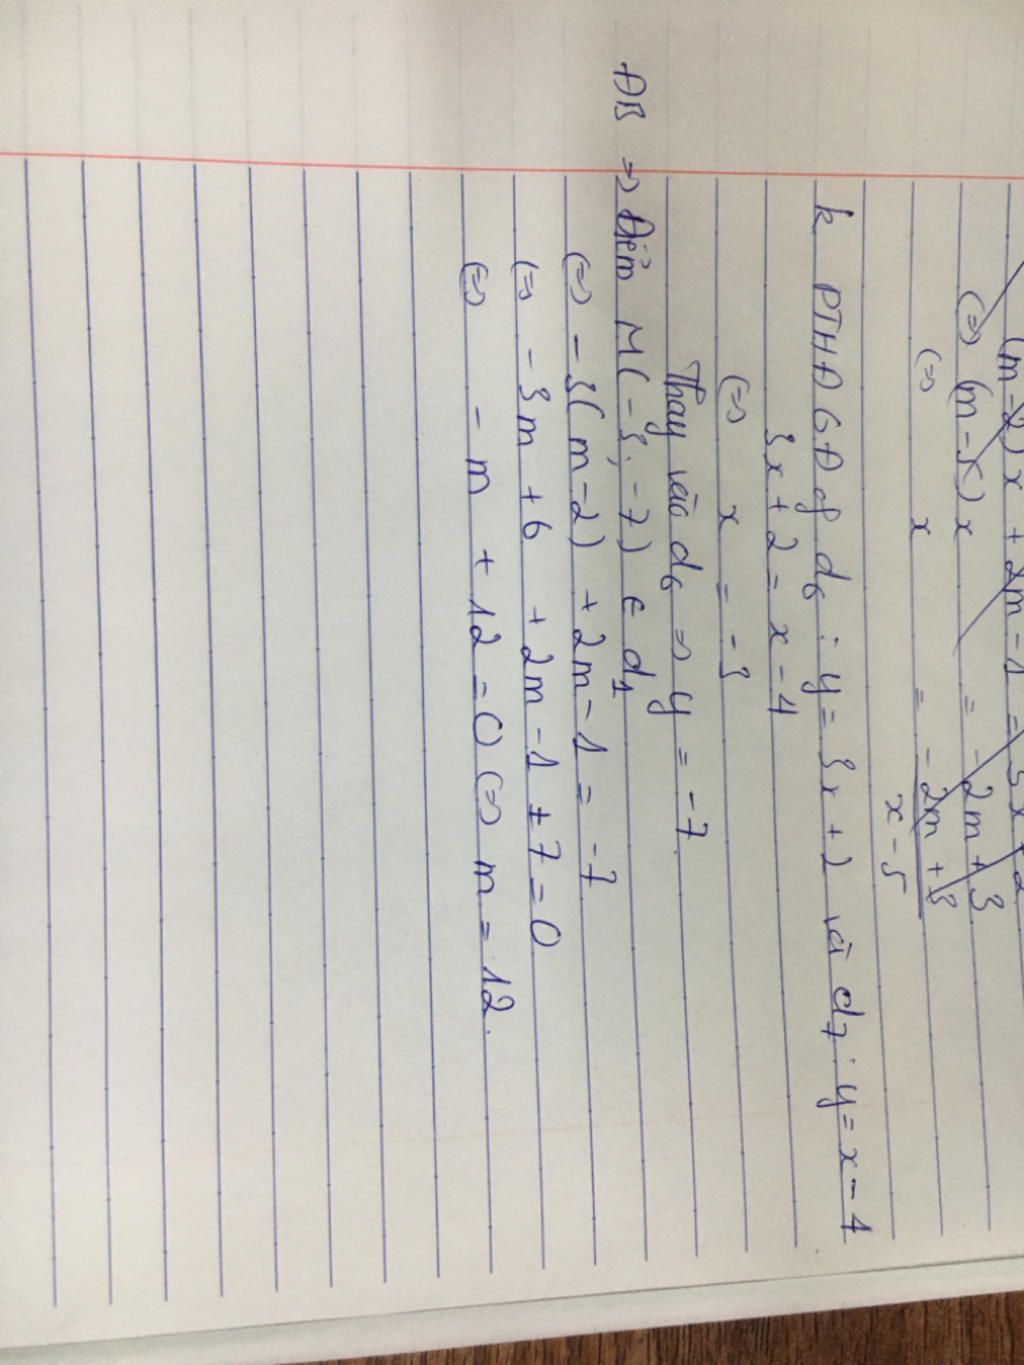 (m-2)x + 2m-1 = 5x+2
(=) (m-5)x = -2m+3
(=) x = -2m+3
x-5
k PTHĐGĐ of d6 : y = 3x+2 và d7 : y = x-4
3x+2 = x-4
(=) x = -3
Thay vào d6 => y = -7
ĐB => Điểm M(-3; -7) ∈ d1
(=) -3(m-2) + 2m-1 = -7
(=) -3m +6 +2m-1+7=0
(=) -m + 12 = 0 (=) m = 12.